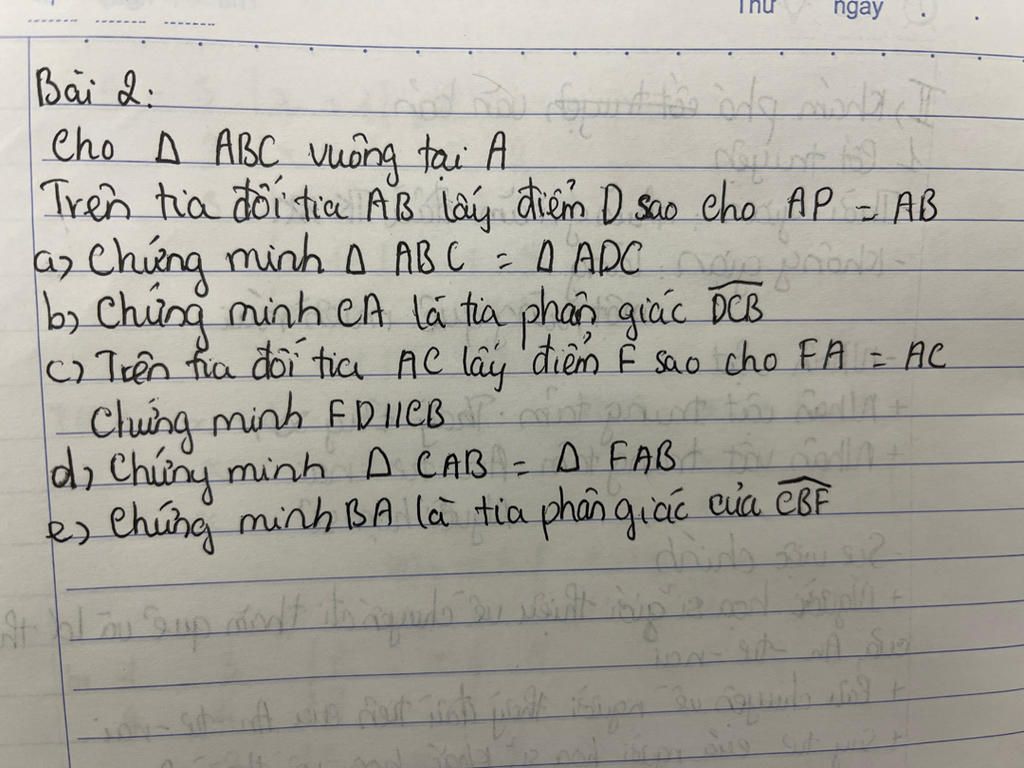 Thứ ngày
Bài 2:
Cho Δ ABC vuông tại A
Trên tia đối tia AB lấy điểm D sao cho AP = AB
a) Chứng minh Δ ABC = Δ ADC
b) Chứng minh CA là tia phân giác \widehat{DCB}
c) Trên tia đối tia AC lấy điểm F sao cho FA = AC
Chứng minh FD//CB
d) Chứng minh Δ CAB = Δ FAB
e) Chứng minh BA là tia phân giác của \widehat{CBF}